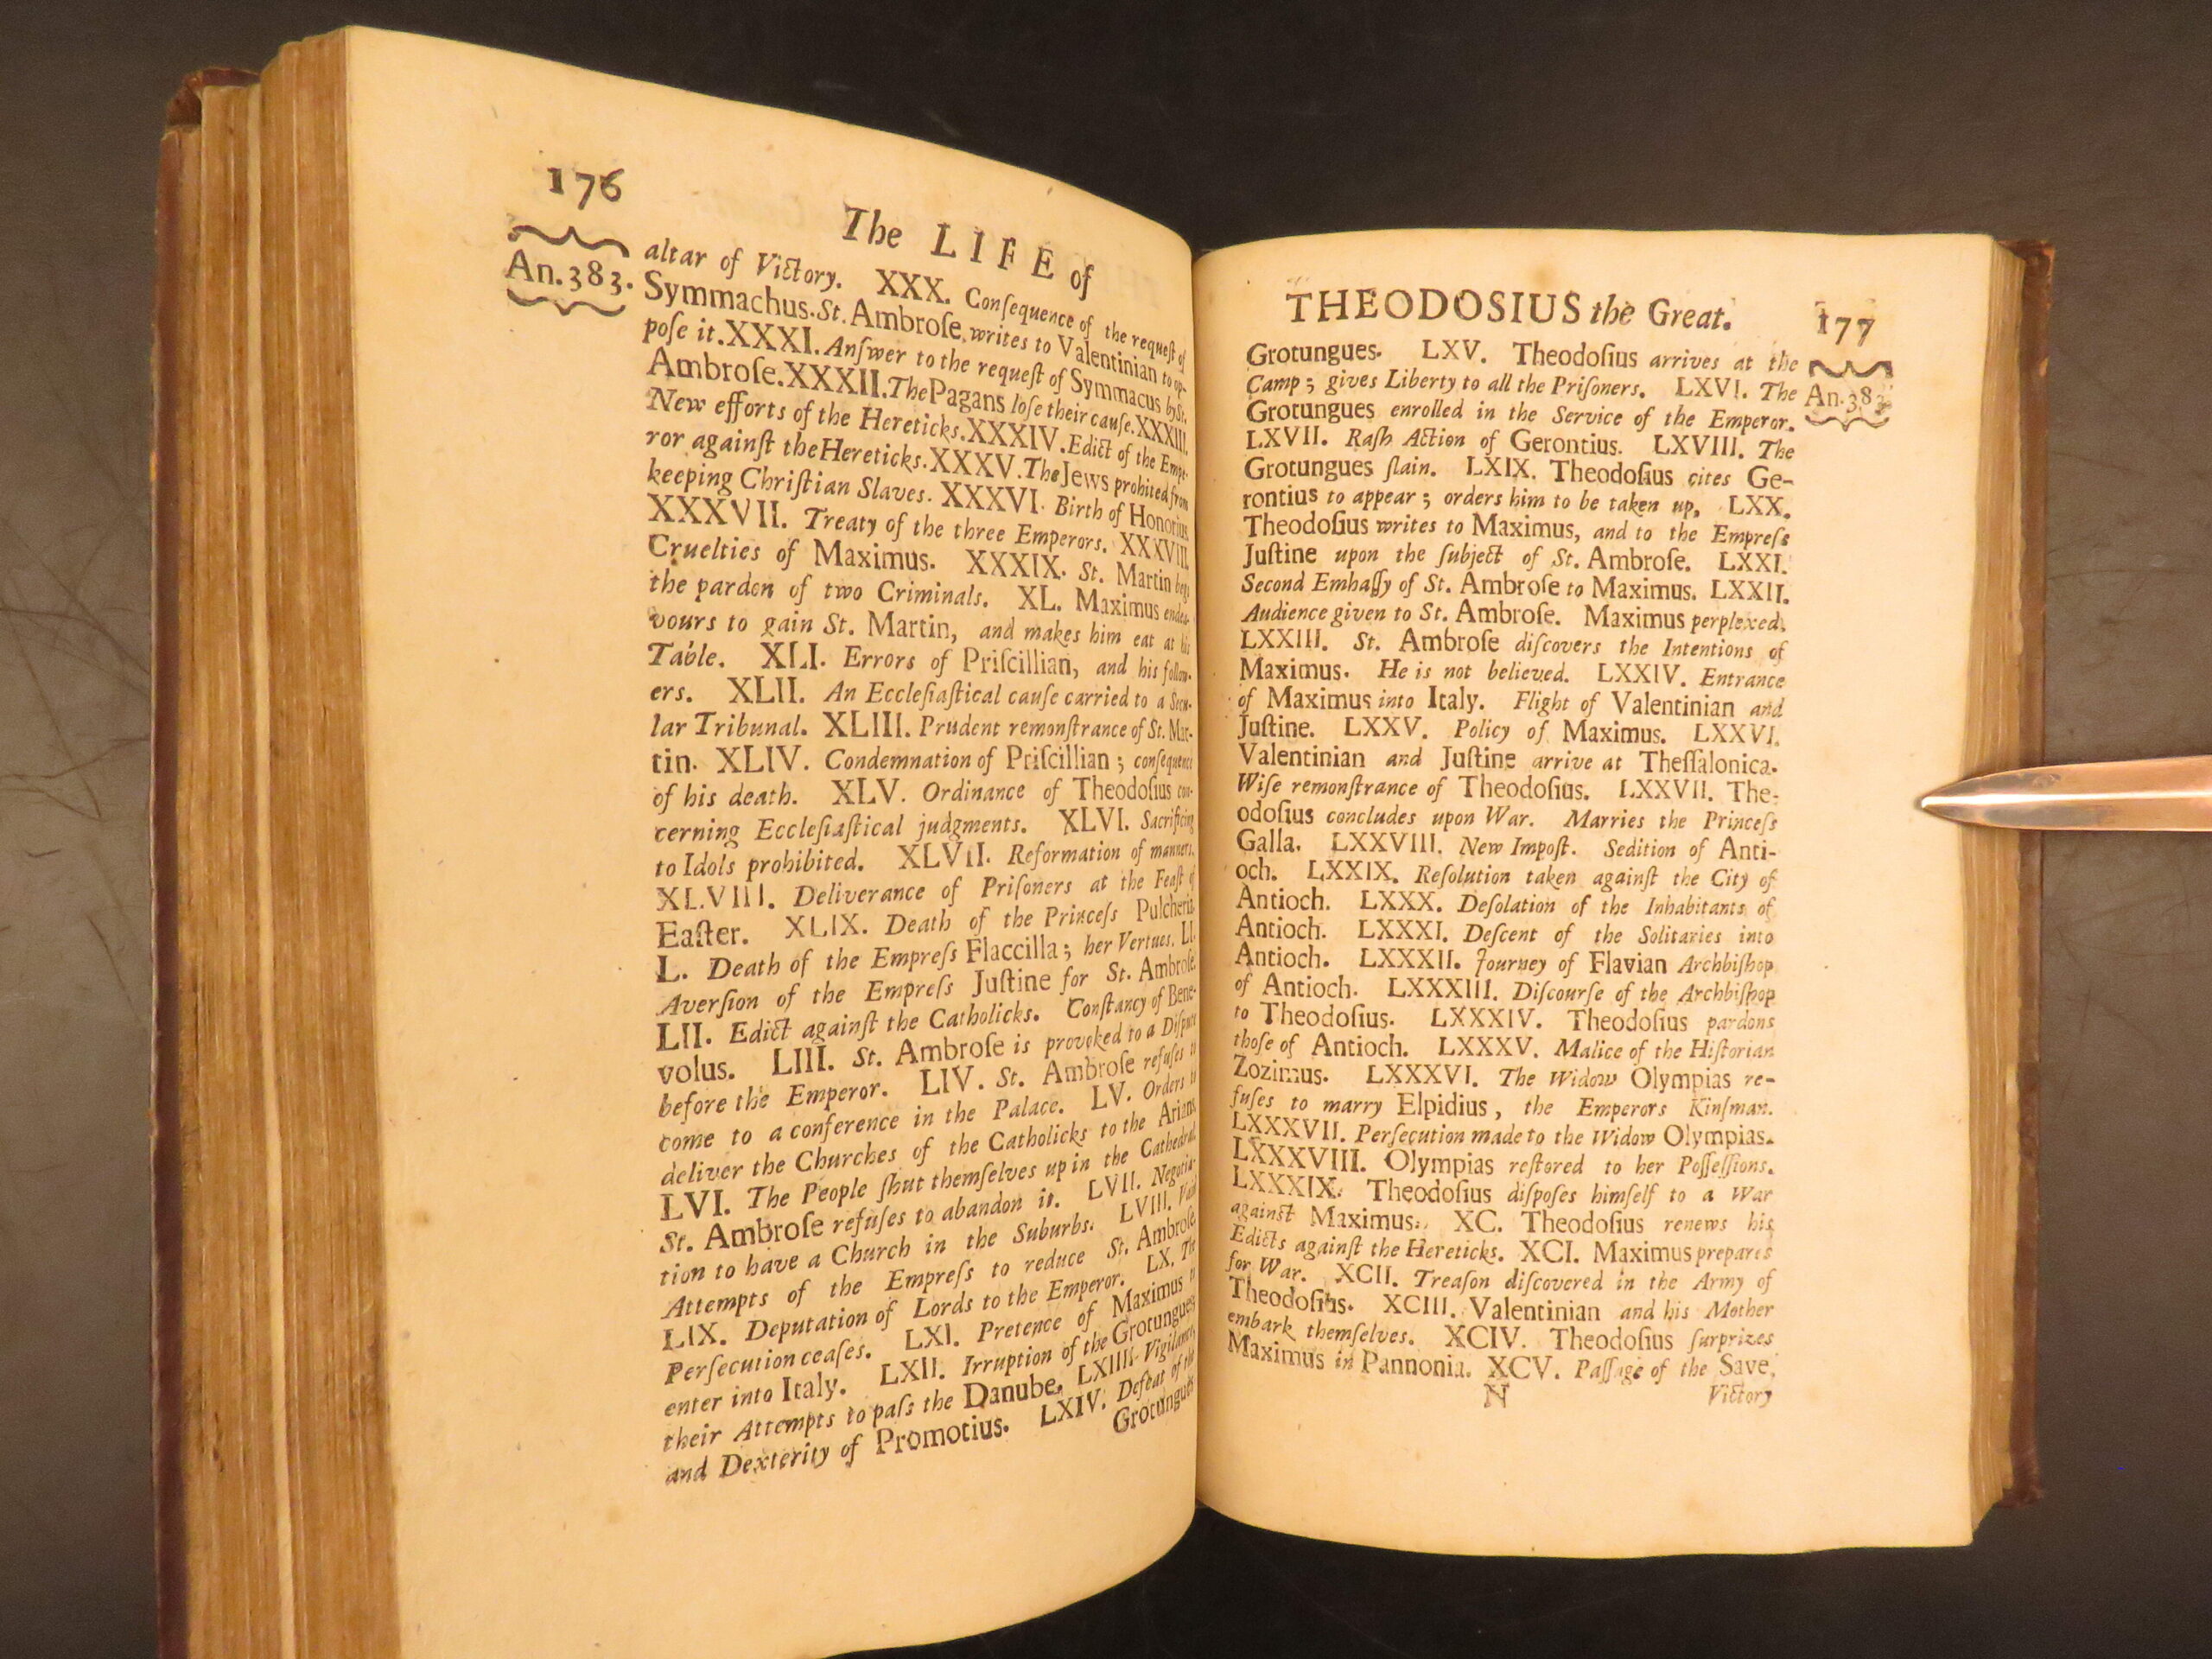 176
The LIFE of
An. 383.
altar of Victory. XXX. Conſequence of the requeſt of
Symmachus. St. Ambroſe, writes to Valentinian to op-
poſe it. XXXI. Anſwer to the requeſt of Symmacus by St.
Ambroſe. XXXII. The Pagans loſe their cauſe. XXXIII.
New efforts of the Hereticks. XXXIV. Edict of the Empe-
ror againſt the Hereticks. XXXV. The Jews prohited from
keeping Chriſtian Slaves. XXXVI. Birth of Honorius.
XXXVII. Treaty of the three Emperors. XXXVIII.
Cruelties of Maximus. XXXIX. St. Martin begs
the pardon of two Criminals. XL. Maximus endea-
vours to gain St. Martin, and makes him eat at his
Table. XLI. Errors of Priſcillian, and his follow-
ers. XLII. An Eccleſiaſtical cauſe carried to a Secu-
lar Tribunal. XLIII. Prudent remonſtrance of St. Mar-
tin. XLIV. Condemnation of Priſcillian; conſequence
of his death. XLV. Ordinance of Theodoſius con-
cerning Eccleſiaſtical judgments. XLVI. Sacrificing
to Idols prohibited. XLVII. Reformation of manners.
XLVIII. Deliverance of Priſoners at the Feaſt of
Eaſter. XLIX. Death of the Princeſs Pulcheria.
L. Death of the Empreſs Flaccilla; her Vertues. LI.
Averſion of the Empreſs Juſtine for St. Ambroſe.
LII. Edict againſt the Catholicks. Conſtancy of Bene-
volus. LIII. St. Ambroſe is provoked to a Diſpute
before the Emperor. LIV. St. Ambroſe refuſes to
come to a conference in the Palace. LV. Orders to
deliver the Churches of the Catholicks to the Arians.
LVI. The People ſhut themſelves up in the Cathedral
St. Ambroſe refuſes to abandon it. LVII. Negotia-
tion to have a Church in the Suburbs. LVIII. Vain
Attempts of the Empreſs to reduce St. Ambroſe.
LIX. Deputation of Lords to the Emperor. LX. The
Perſecution ceaſes. LXI. Pretence of Maximus to
enter into Italy. LXII. Irruption of the Grotungues
their Attempts to paſs the Danube. LXIIII. Vigilance,
and Dexterity of Promotius. LXIV. Defeat of the
Grotungues
THEODOSIUS the Great.
177
An. 383.
Grotungues. LXV. Theodoſius arrives at the
Camp; gives Liberty to all the Priſoners. LXVI. The
Grotungues enrolled in the Service of the Emperor.
LXVII. Raſh Action of Gerontius. LXVIII. The
Grotungues ſlain. LXIX. Theodoſius cites Ge-
rontius to appear; orders him to be taken up. LXX.
Theodoſius writes to Maximus, and to the Empreſs
Juſtine upon the ſubject of St. Ambroſe. LXXI.
Second Embaſſy of St. Ambroſe to Maximus. LXXII.
Audience given to St. Ambroſe. Maximus perplexed.
LXXIII. St. Ambroſe diſcovers the Intentions of
Maximus. He is not believed. LXXIV. Entrance
of Maximus into Italy. Flight of Valentinian and
Juſtine. LXXV. Policy of Maximus. LXXVI.
Valentinian and Juſtine arrive at Theſſalonica.
Wiſe remonſtrance of Theodoſius. LXXVII. The-
odoſius concludes upon War. Marries the Princeſs
Galla. LXXVIII. New Impoſt. Sedition of Anti-
och. LXXIX. Reſolution taken againſt the City of
Antioch. LXXX. Deſolation of the Inhabitants of
Antioch. LXXXI. Deſcent of the Solitaries into
Antioch. LXXXII. Journey of Flavian Archbiſhop
of Antioch. LXXXIII. Diſcourſe of the Archbiſhop
to Theodoſius. LXXXIV. Theodoſius pardons
thoſe of Antioch. LXXXV. Malice of the Hiſtorian
Zozimus. LXXXVI. The Widow Olympias re-
fuſes to marry Elpidius, the Emperors Kinſman.
LXXXVII. Perſecution made to the Widow Olympias.
LXXXVIII. Olympias reſtored to her Poſſeſſions.
LXXXIX. Theodoſius diſpoſes himſelf to a War
againſt Maximus. XC. Theodoſius renews his
Edicts againſt the Hereticks. XCI. Maximus prepares
for War. XCII. Treaſon diſcovered in the Army of
Theodoſius. XCIII. Valentinian and his Mother
embark themſelves. XCIV. Theodoſius ſurprizes
Maximus in Pannonia. XCV. Paſſage of the Save.
N
Victory